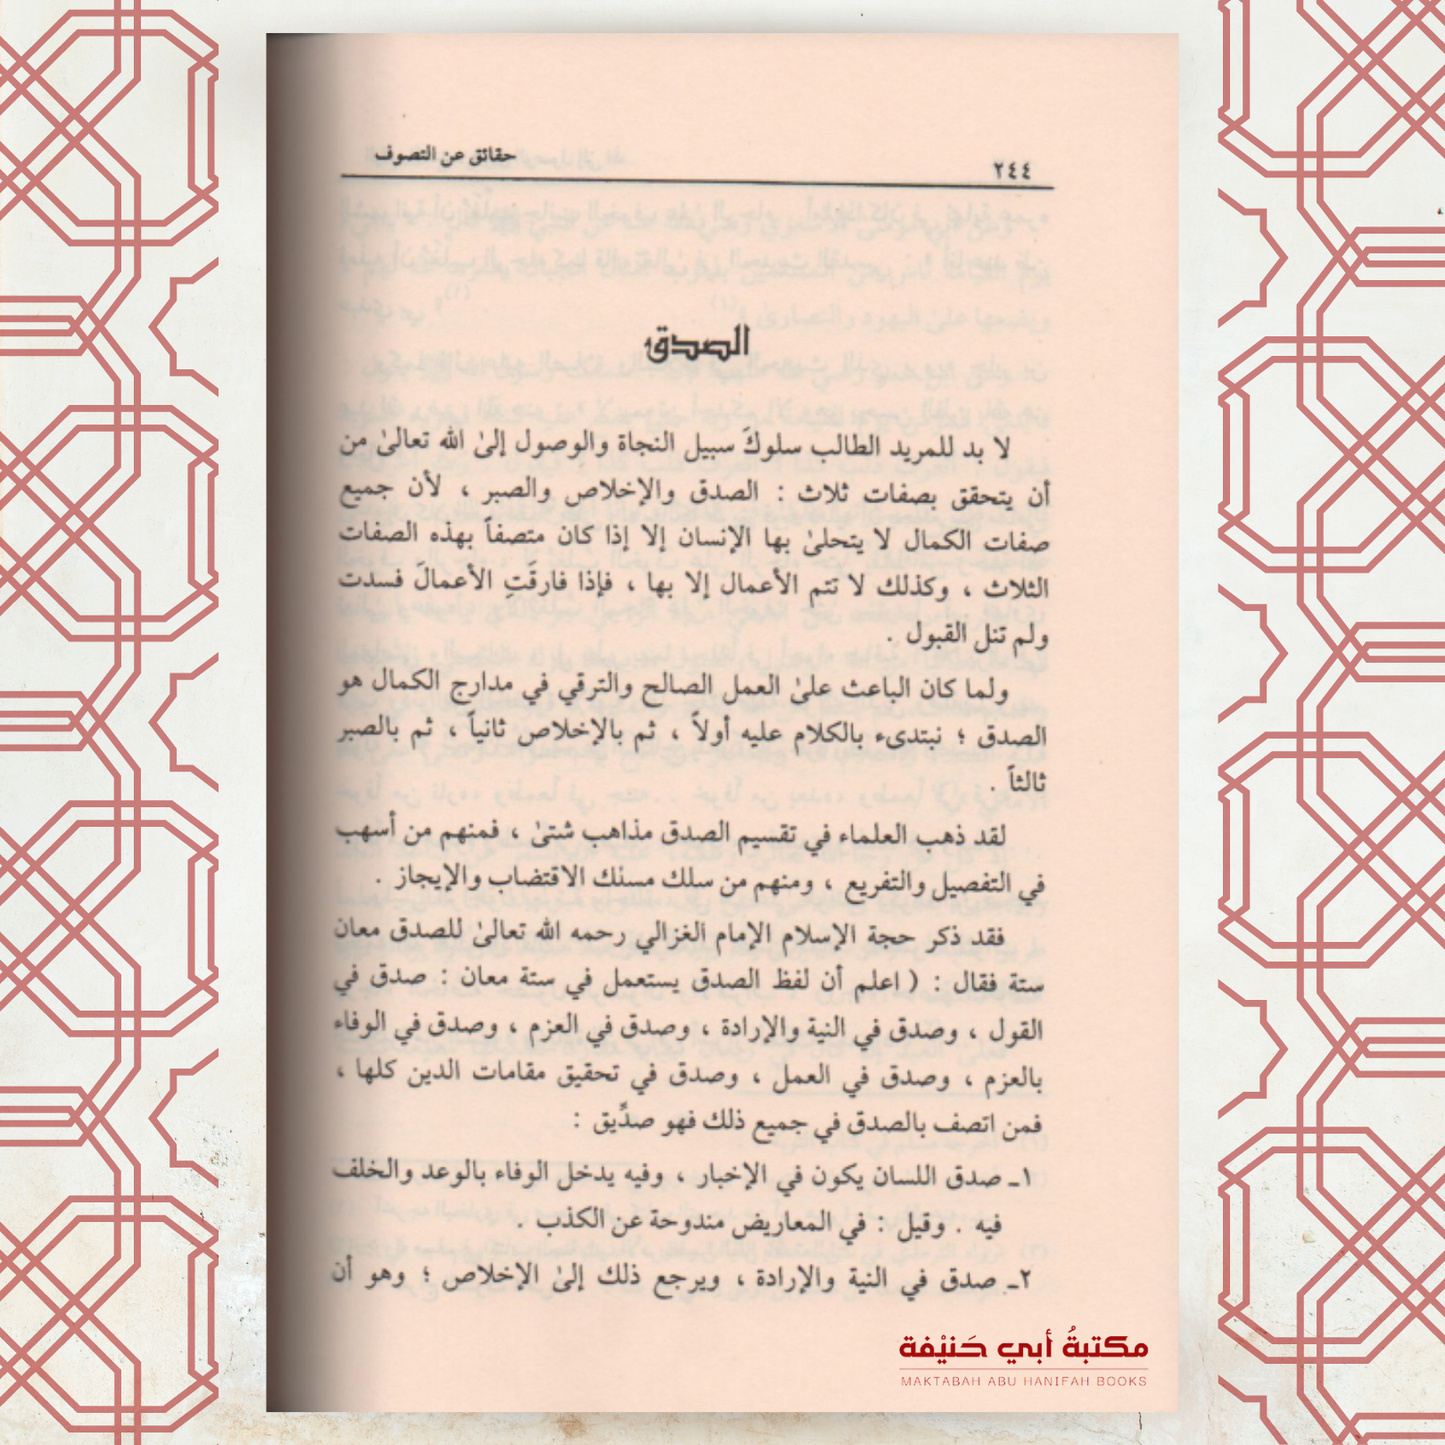 ٢٤٤
حقائق عن التصوف
الصدق
لا بد للمريد الطالب سلوكَ سبيل النجاة والوصول إلىٰ الله تعالىٰ من
أن يتحقق بصفات ثلاث : الصدق والإخلاص والصبر ، لأن جميع
صفات الكمال لا يتحلىٰ بها الإنسان إلا إذا كان متصفاً بهذه الصفات
الثلاث ، وكذلك لا تتم الأعمال إلا بها ، فإذا فارقَتِ الأعمالَ فسدت
ولم تنل القبول .
ولما كان الباعث علىٰ العمل الصالح والترقي في مدارج الكمال هو
الصدق ؛ نبتدىء بالكلام عليه أولاً ، ثم بالإخلاص ثانياً ، ثم بالصبر
ثالثاً .
لقد ذهب العلماء في تقسيم الصدق مذاهب شتىٰ ، فمنهم من أسهب
في التفصيل والتفريع ، ومنهم من سلك مسلك الاقتضاب والإيجاز .
فقد ذكر حجة الإسلام الإمام الغزالي رحمه الله تعالىٰ للصدق معان
ستة فقال : ( اعلم أن لفظ الصدق يستعمل في ستة معان : صدق في
القول ، وصدق في النية والإرادة ، وصدق في العزم ، وصدق في الوفاء
بالعزم ، وصدق في العمل ، وصدق في تحقيق مقامات الدين كلها ،
فمن اتصف بالصدق في جميع ذلك فهو صدِّيق :
١ـ صدق اللسان يكون في الإخبار ، وفيه يدخل الوفاء بالوعد والخلف
فيه . وقيل : في المعاريض مندوحة عن الكذب .
٢ـ صدق في النية والإرادة ، ويرجع ذلك إلىٰ الإخلاص ؛ وهو أن
مكتبةُ أبي حَنيْفة
MAKTABAH ABU HANIFAH BOOKS